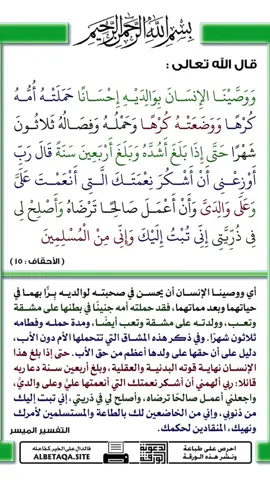 بسم الله الرحمن الرحيم
قال الله تعالى :
وَوَصَّيْنَا الإِنسَانَ بِوَالِدَيْهِ إِحْسَانًا حَمَلَتْهُ أُمُّهُ
كُرْهًا وَوَضَعَتْهُ كُرْهًا وَحَمْلُهُ وَفِصَالُهُ ثَلاثُونَ
شَهْرًا حَتَّى إِذَا بَلَغَ أَشُدَّهُ وَبَلَغَ أَرْبَعِينَ سَنَةً قَالَ رَبِّ
أَوْزِعْنِي أَنْ أَشْكُرَ نِعْمَتَكَ الَّتِي أَنْعَمْتَ عَلَيَّ
وَعَلَى وَالِدَيَّ وَأَنْ أَعْمَلَ صَالِحًا تَرْضَاهُ وَأَصْلِحْ لِي
فِي ذُرِّيَّتِي إِنِّي تُبْتُ إِلَيْكَ وَإِنِّي مِنَ الْمُسْلِمِينَ
( الأحقاف : ١٥ )
أي ووصينا الإنسان أن يحسن في صحبته لوالديه برًّا بهما في
حياتهما وبعد مماتهما، فقد حملته أمه جنينًا في بطنها على مشقة
وتعب، وولدته على مشقة وتعب أيضًا، ومدة حمله وفطامه
ثلاثون شهرًا. وفي ذكر هذه المشاق التي تتحملها الأم دون الأب،
دليل على أن حقها على ولدها أعظم من حق الأب. حتى إذا بلغ هذا
الإنسان نهاية قوته البدنية والعقلية، وبلغ أربعين سنة دعا ربه
قائلا: ربي ألهمني أن أشكر نعمتك التي أنعمتها عليَّ وعلى والديَّ،
واجعلني أعمل صالحًا ترضاه، وأصلح لي في ذريتي، إني تبت إليك
من ذنوبي، وإني من الخاضعين لك بالطاعة والمستسلمين لأمرك
ونهيك، المنقادين لحكمك.
التفسير الميسر
احرص على طباعة
ونشر هذه الورقة
فالدال على الخير كفاعله
ALBETAQA.SITE